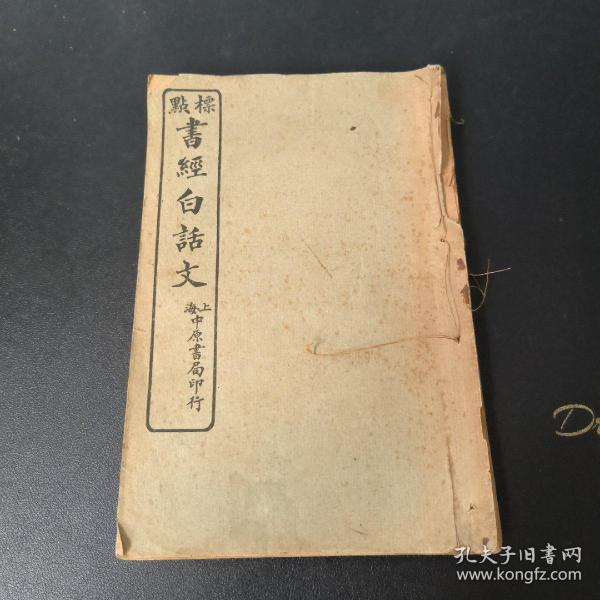 標點
書經白話文
上海
中原書局印行
Dr
孔夫子旧书网
www.kongfz.com